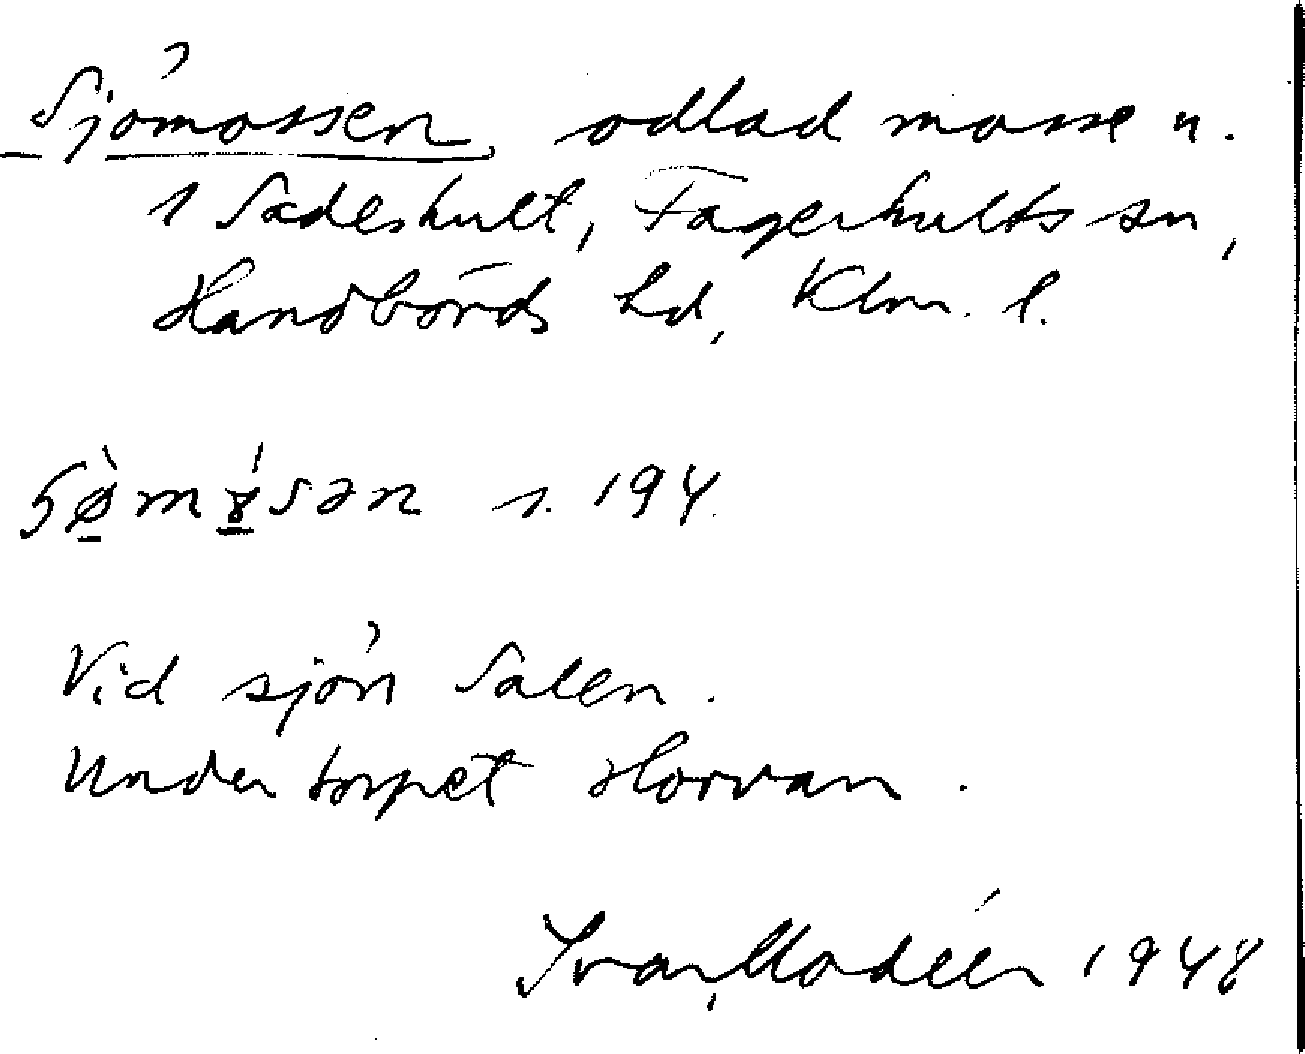 Sjömossen, odlad mosse u.
1 Sadeshult, Fagerhults sn,
Handbörds hd, Klm. l.
s. 194.
Vid sjön Salen.
Under torpet Horvan.
Ivar Modéer 1948